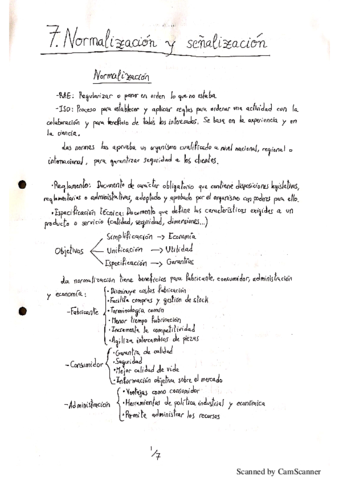 7. Normalización y señalización
Normalización
-RAE: Regularizar o poner en orden lo que no estaba
-ISO: Proceso para establecer y aplicar reglas para ordenar una actividad con la
colaboración y para beneficio de todos los interesados. Se basa en la experiencia y en
la ciencia.
Las normas las aprueba un organismo cualificado a nivel nacional, regional o
internacional, para garantizar seguridad a los clientes.
•Reglamento: Documento de carácter obligatorio que contiene disposiciones legislativas,
reglamentarias o administrativas, adoptado y aprobado por el organismo con poderes para ello.
•Especificación técnica: Documento que define las características exigidas a un
producto o servicio (calidad, seguridad, dimensiones...)
Simplificación → Economía
Objetivos Unificación → Utilidad
Especificación → Garantías
La normalización tiene beneficios para fabricante, consumidor, administración
y economía:
•Disminuye costes fabricación
•Facilita compras y gestión de stock
-Fabricante •Terminología común
•Menor tiempo fabricación
•Incrementa la competitividad
•Agiliza intercambios de piezas
•Garantía de calidad
•Seguridad
-Consumidor •Mejor calidad de vida
•Información objetiva sobre el mercado
•Ventajas como consumidor
-Administración •Herramientas de política industrial y económica
•Permite administrar los recursos
1/7
Scanned by CamScanner